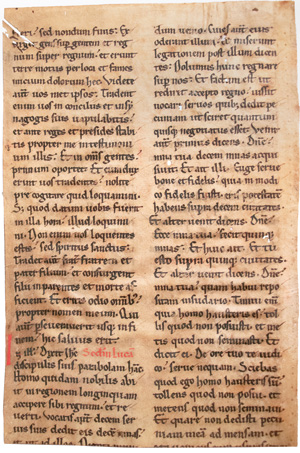 fieri. sed nondum finis. Ex
surget gens sup gentem et reg
num super regnum. et erunt
terre motus per loca et fames
inicium dolorum hec. Videte
aut uos met ipsos. Tradent
enim uos in conciliis et in sy
nagogis suis uapulabitis
et ante reges et presides stabi
tis propter me in testimoni
um illis. Et in oms gentes
primum oportet
erint uos tradentes. nolite
precogitare quid loquamini.
S; quod datum uobis fuerit
in illa hora. illud loquimi
ni. Non enim uos loquentes
estis. sed spiritus sanctus.
Tradet aut frater fratrem et
pater filium. et consurgent
filii in parentes et morte af
ficient. Et eritis odio omib;
propter nomen meum. Qui
aut pseuerauerit usq in fi
nem. hic saluus erit
In ill. Dixit ihc Scdm lucā
discipulis suis parabolam hanc
Homo quidam nobilis abi
it in regionem longinquam
accipere sibi regnum. et re
uerti. Vocatis aut decem ser
uis suis dedit eis decē mnas.
et ait ad illos.
dum uenio. Ciues aut eius
oderant illum. et miserunt
legationem post illum dicen
tes. Nolumus hunc regnare
sup nos. Et factum est ut
rediret accepto regno. iussit
uocari seruos quib; dedit pe
cuniam ut sciret quantum
quisq; negotiatus esset. Venit
aut primus dicens. Dne
mna tua decem mnas acqui
siuit. Et ait illi. Euge serue
bone et fidelis. quia in modi
co fidelis fuisti. eris potestatē
habens supra decem ciuitates.
Et alter uenit dicens. Dne
mna tua fecit quinq;
mnas. Et huic ait. Et tu
esto supra quinq; ciuitates.
Et alter uenit dicens. Dne
ecce mna tuam quam habui repo
sitam in sudario. Timui enim
quia homo austeris es. tol
lis quod non posuisti. et me
tis quod non seminasti. Et
dicit ei. De ore tuo te iudi
co. serue nequam. Sciebas
quod ego homo austeris sum
tollens quod non posui. et
metens quod non seminaui.
Et quare non dedisti pecu
niam meam ad mensam. et